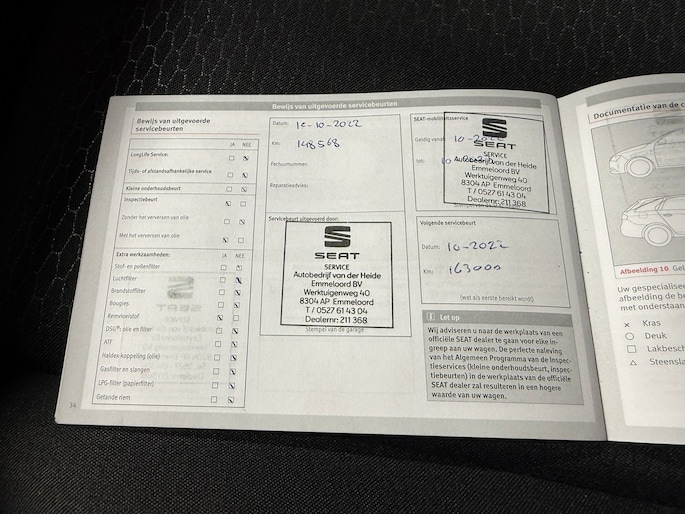 Bewijs van uitgevoerde servicebeurten
Bewijs van uitgevoerde
servicebeurten
JA NEE
LongLife Service:
Tijds- of afstandsafhankelijke service
Kleine onderhoudsbeurt
Inspectiebeurt
Zonder het verversen van olie
Met het verversen van olie
Extra werkzaamheden: JA NEE
Stof- en pollenfilter
Luchtfilter
Brandstoffilter
Bougies
Remvloeistof
DSG®: olie en filter
ATF
Haldex-koppeling (olie)
Gasfilter en slangen
LPG-filter (papierfilter)
Getande riem
34
Datum: -10-2022
Km: 148568
Factuurnummer:
Reparatieadvies:
Servicebeurt uitgevoerd door:
SEAT
SERVICE
Autobedrijf van der Heide
Emmeloord BV
Werktuigenweg 40
8304 AP Emmeloord
T / 0527 61 43 04
Dealernr: 211 368
Stempel van de garage
SEAT-mobiliteitsservice
Geldig vanaf 10-20
tot: 10
SEAT
SERVICE
Autobedrijf van der Heide
Emmeloord BV
Werktuigenweg 40
8304 AP Emmeloord
T / 0527 61 43 04
Dealernr: 211 368
Volgende servicebeurt
Datum: 10-202
Km: 163000
(wat als eerste bereikt wordt)
i Let op
Wij adviseren u naar de werkplaats van een
officiële SEAT dealer te gaan voor elke in-
greep aan uw wagen. De perfecte naleving
van het Algemeen Programma van de Inspec-
tieservices (kleine onderhoudsbeurt, inspec-
tiebeurten) in de werkplaats van de officiële
SEAT dealer zal resulteren in een hogere
waarde van uw wagen.
Documentatie van de c
Afbeelding 10 Gel
Uw gespecialisee
afbeelding de be
met onderstaan
× Kras
○ Deuk
□ Lakbesch
△ Steensla